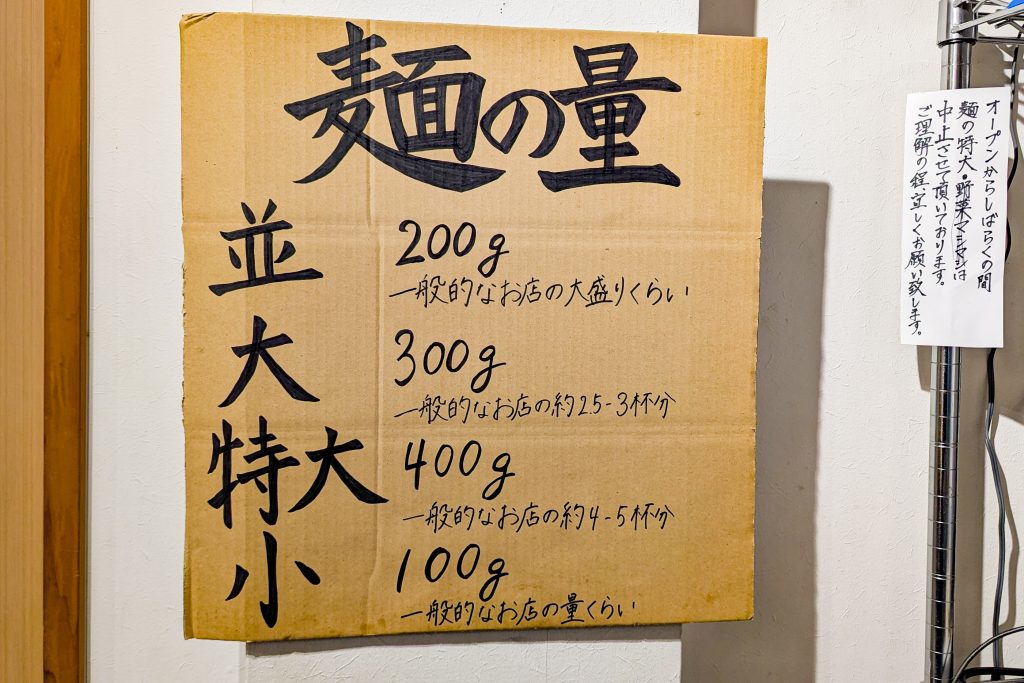 麺の量
並 200g
一般的なお店の大盛りくらい
大 300g
一般的なお店の約2.5-3杯分
特大 400g
一般的なお店の約4-5杯分
小 100g
一般的なお店の量くらい
オープンからしばらくの間
麺の特大・野菜マシマシは
中止させて頂いております。
ご理解の程、宜しくお願い致します。